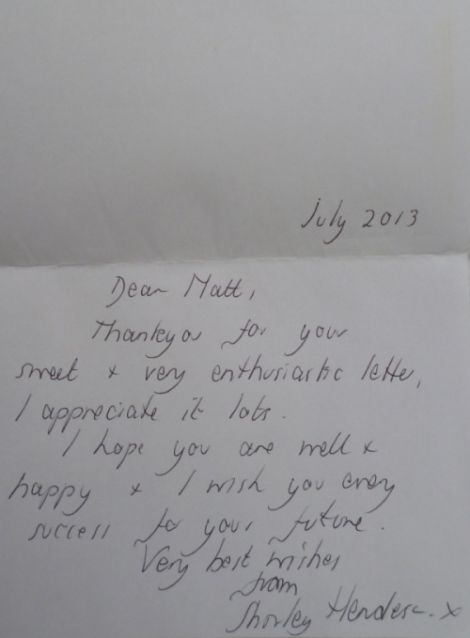 July 2013
Dear Matt,
Thankyou for your
sweet & very enthusiastic letter,
I appreciate it lots.
I hope you are well &
happy & I wish you every
success for your future.
Very best wishes
from
Shirley Henderson x